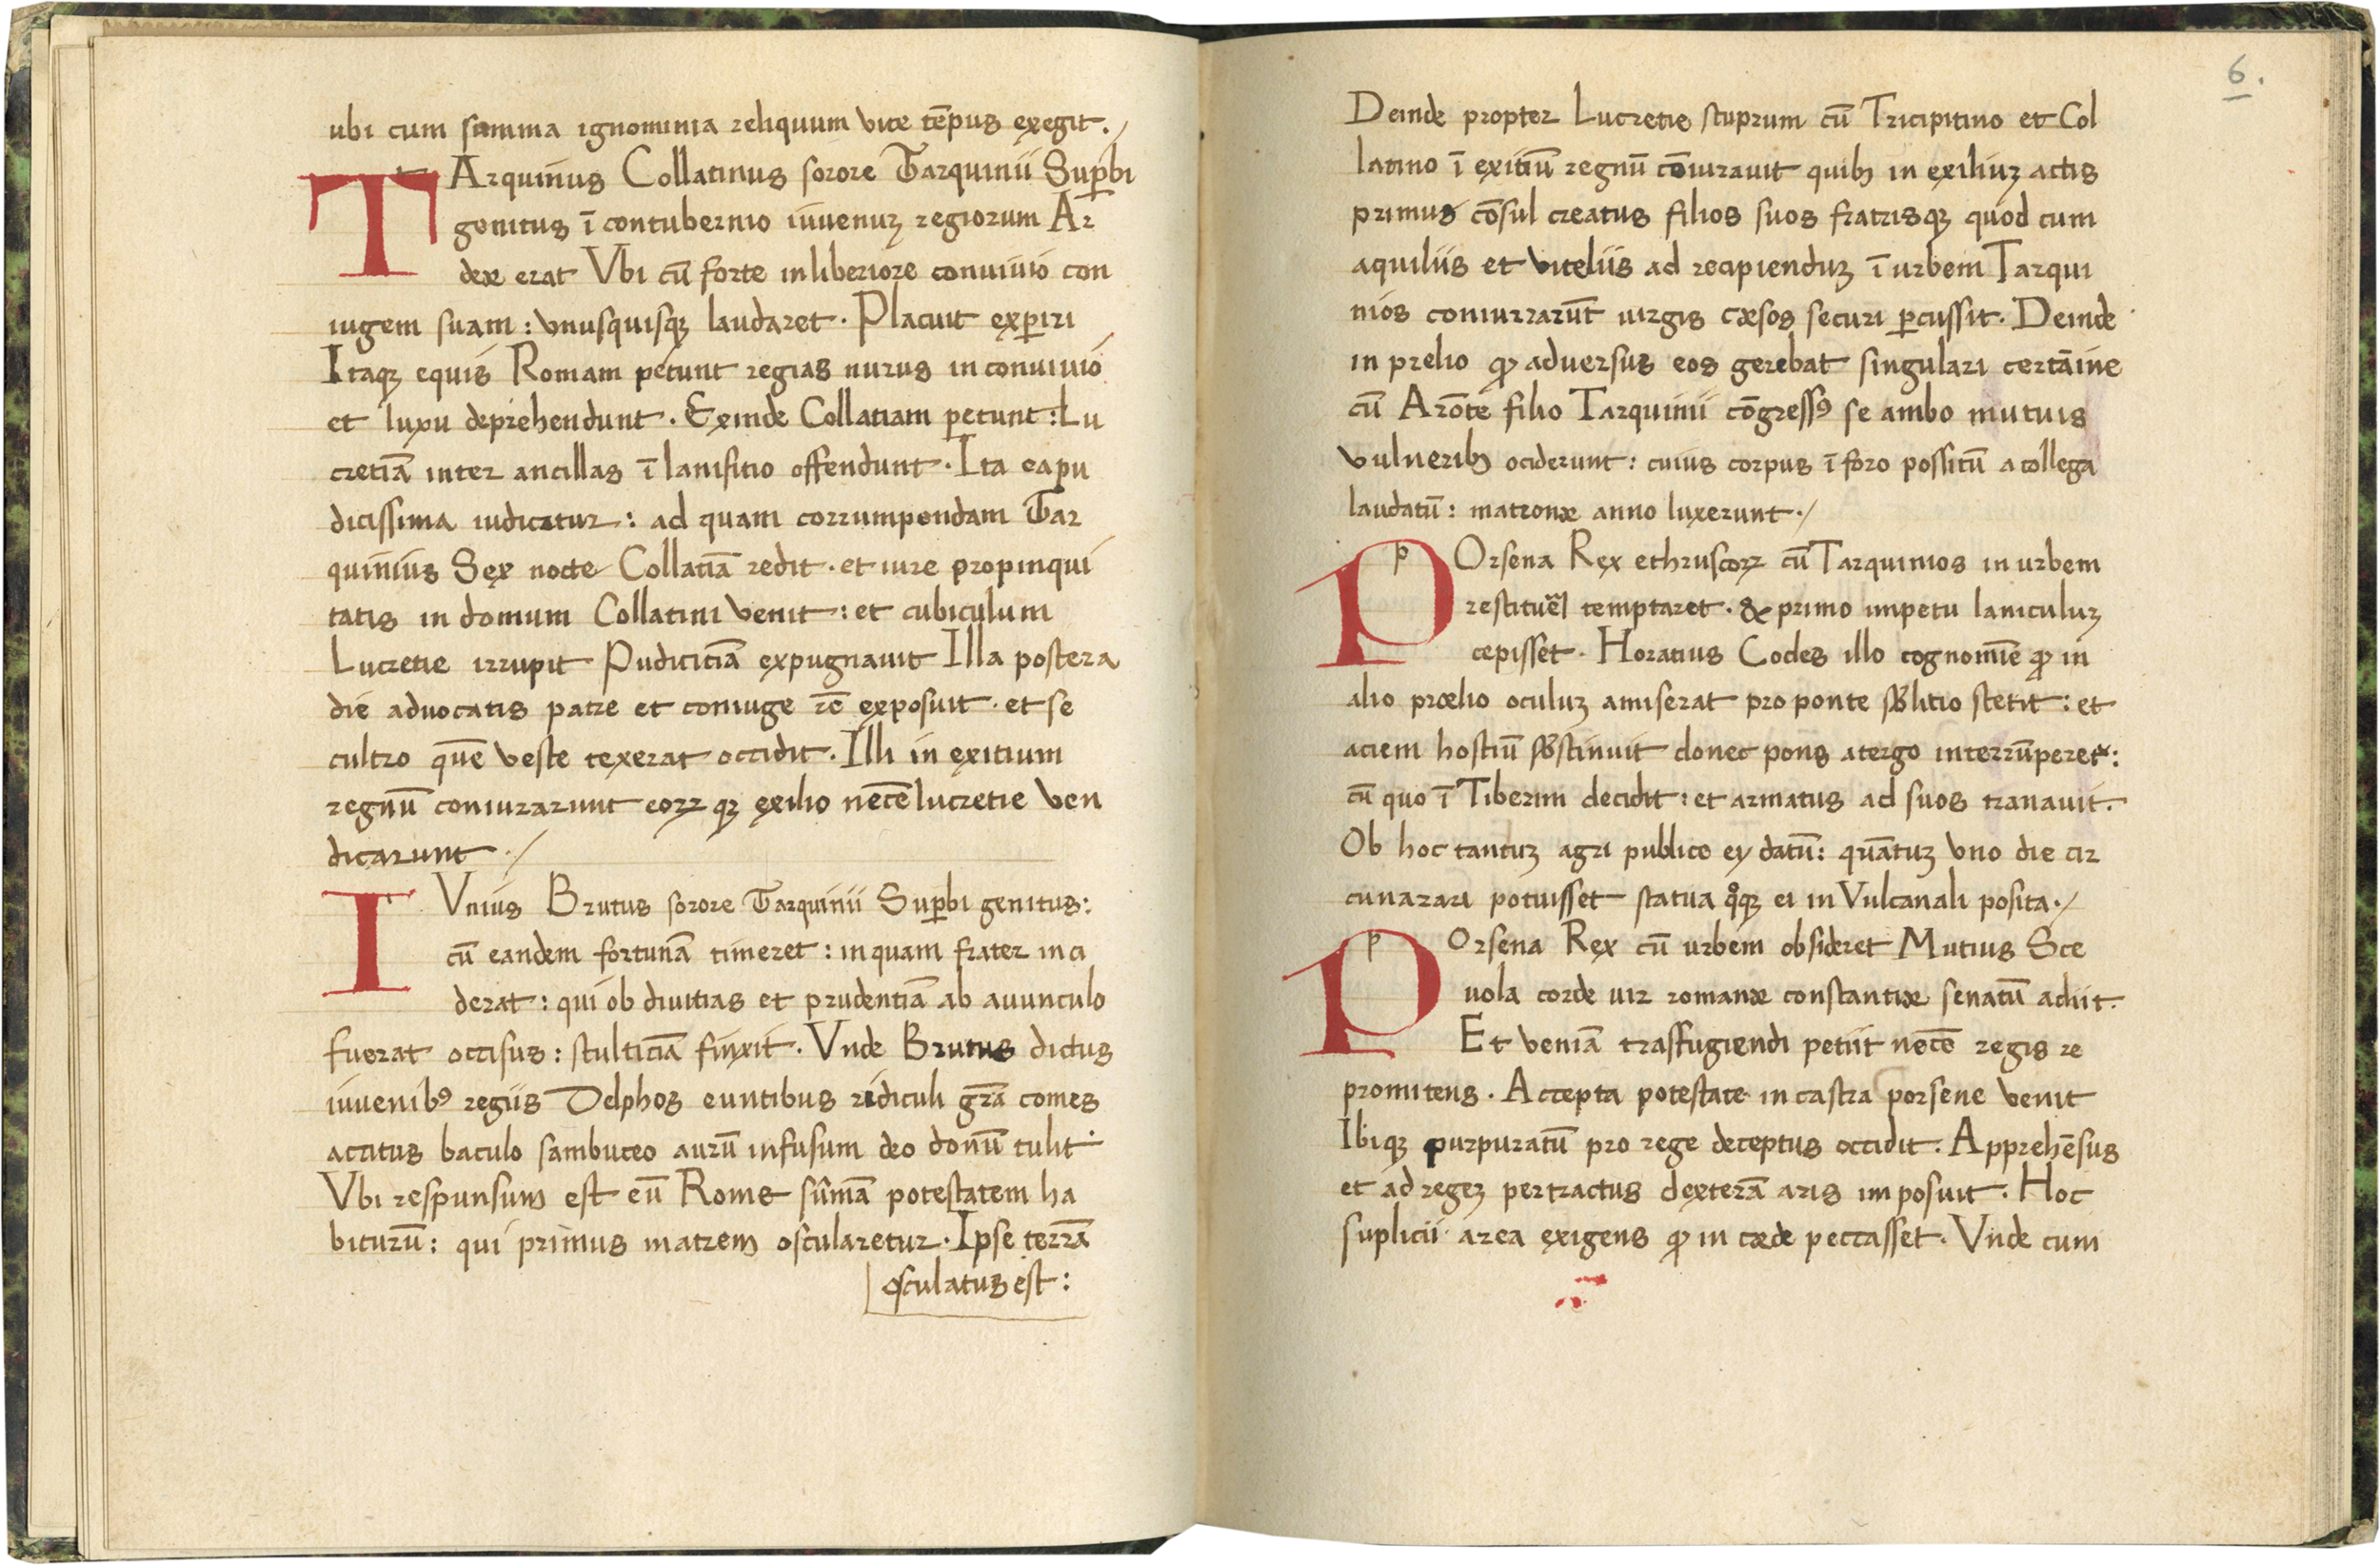 ubi cum summa ignominia reliquum vite tēpus exegit./
TArquinius Collatinus sorore Tarquinii Suꝑbi
genitus ī contubernio iuvenuꝫ regiorum Ar
deæ erat Vbi cū forte in liberiore convivio con
iugem suam: vnusquisqꝫ laudaret. Placuit exꝑiri
Itaqꝫ equis Romam petunt regias nurus in convivio
et luxu deprehendunt. Exinde Collatiam petunt: Lu
cretiā inter ancillas ī lanifitio offendunt. Ita ea pu
dicissima iudicatur: ad quam corrumpendam Tar
quinius Sex nocte Collatiā redit. et iure propinqui
tatis in domum Collatini venit: et cubiculum
Lucretie irrupit Pudiciciā expugnavit Illa postera
die advocatis patre et coniuge rē exposuit. et se
cultro quē veste texerat occidit. Illi in exitium
regnū coniurarunt eoꝝ qꝫ exilio necē lucretie ven
dicarunt./
IVnius Brutus sorore Tarquinii Suꝑbi genitus:
cū eandem fortunā timeret: in quam frater inci
derat: qui ob divitias et prudentiā ab avunculo
fuerat occisus: stulticiā finxit. Vnde Brutus dictus
iuvenibꝰ regiis Delphos euntibus ridiculi grā comes
accitus baculo sambuceo aurū infusum deo donū tulit.
Vbi respunsum est eū Rome sūmā potestatem ha
biturū: qui primus matrem oscularetur. Ipse terrā
osculatus est:
6.
Deinde propter Lucretie stuprum cū Tricipitino et Col
latino ī exitiū regnū cōiuravit quibꝫ in exiliuꝫ actis
primus cōsul creatus filios suos fratrisqꝫ quod cum
aquiliis et viteliis ad recipienduꝫ ī urbem Tarqui
nios coniurrarūt virgis cæsos securi ꝑcussit. Deinde
in prelio ꝙ adversus eos gerebat singulari certāine
cū Arōte filio Tarquinii cōgressꝰ se ambo mutuis
vulneribꝫ ociderunt: cuius corpus ī foro possitū a collega
laudatū: matronæ anno luxerunt./
p
POrsena Rex ethruscoꝝ cū Tarquinios in urbem
restituēl temptaret. & primo impetu Ianiculuꝫ
cepisset. Horatius Cocles illo cognomīe ꝙ in
alio prœlio oculuꝫ amiserat pro ponte sb̄litio stetit: et
aciem hostiū sb̄stinuit donec pons atergo interrūperet:
cū quo ī Tiberim decidit: et armatus ad suos tranavit.
Ob hoc tantuꝫ agri publico ey datū: quātuꝫ vno die cir
cunarari potuisset statua qͦqꝫ ei in Vulcanali posita./
p
POrsena Rex cū urbem obsideret Mutius Sce
vola corde vir romanæ constantiæ senatū adiit.
Et veniā trasfugiendi petiit necē regis re
promitens. Accepta potestate in castra porsene venit
Ibiqꝫ purpuratū pro rege deceptus occidit. Apprehēsus
et ad regeꝫ pertractus dexterā aris imposuit. Hoc
suplicii area exigens ꝙ in cæde peccasset. Vnde cum